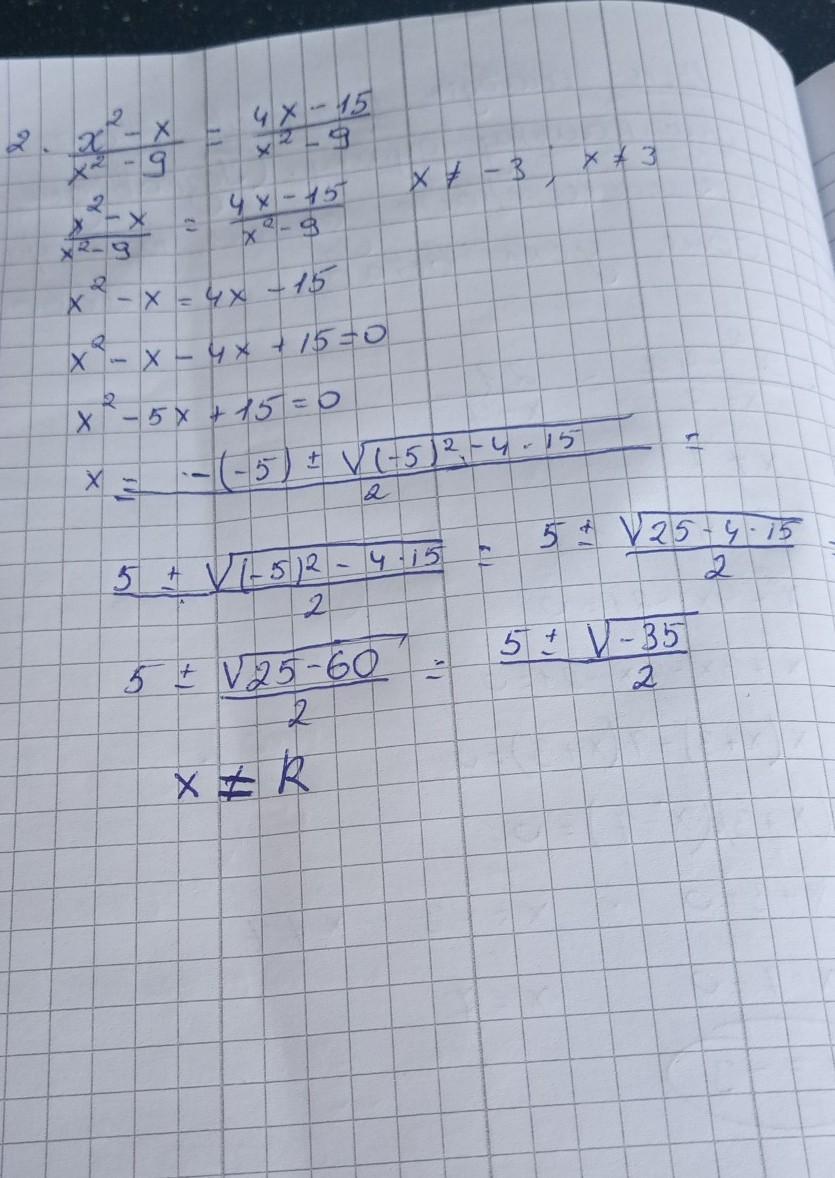 2. (x² - x)/(x² - 9) = (4x - 15)/(x² - 9)
(x² - x)/(x² - 9) = (4x - 15)/(x² - 9) x ≠ -3 ; x ≠ 3
x² - x = 4x - 15
x² - x - 4x + 15 = 0
x² - 5x + 15 = 0
x = (-(-5) ± √((-5)² - 4 · 15))/2 =
(5 ± √((-5)² - 4 · 15))/2 = 5 ± √(25 - 4 · 15)/2 =
5 ± √(25 - 60)/2 = (5 ± √(-35))/2
x ≠ R